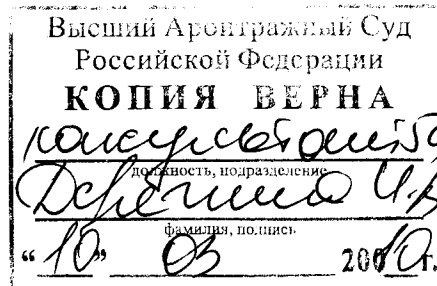 Высший Арбитражный Суд
Российской Федерации
КОПИЯ ВЕРНА
консультант
должность, подразделение
фамилия, подпись
"10" 03 2010 г.